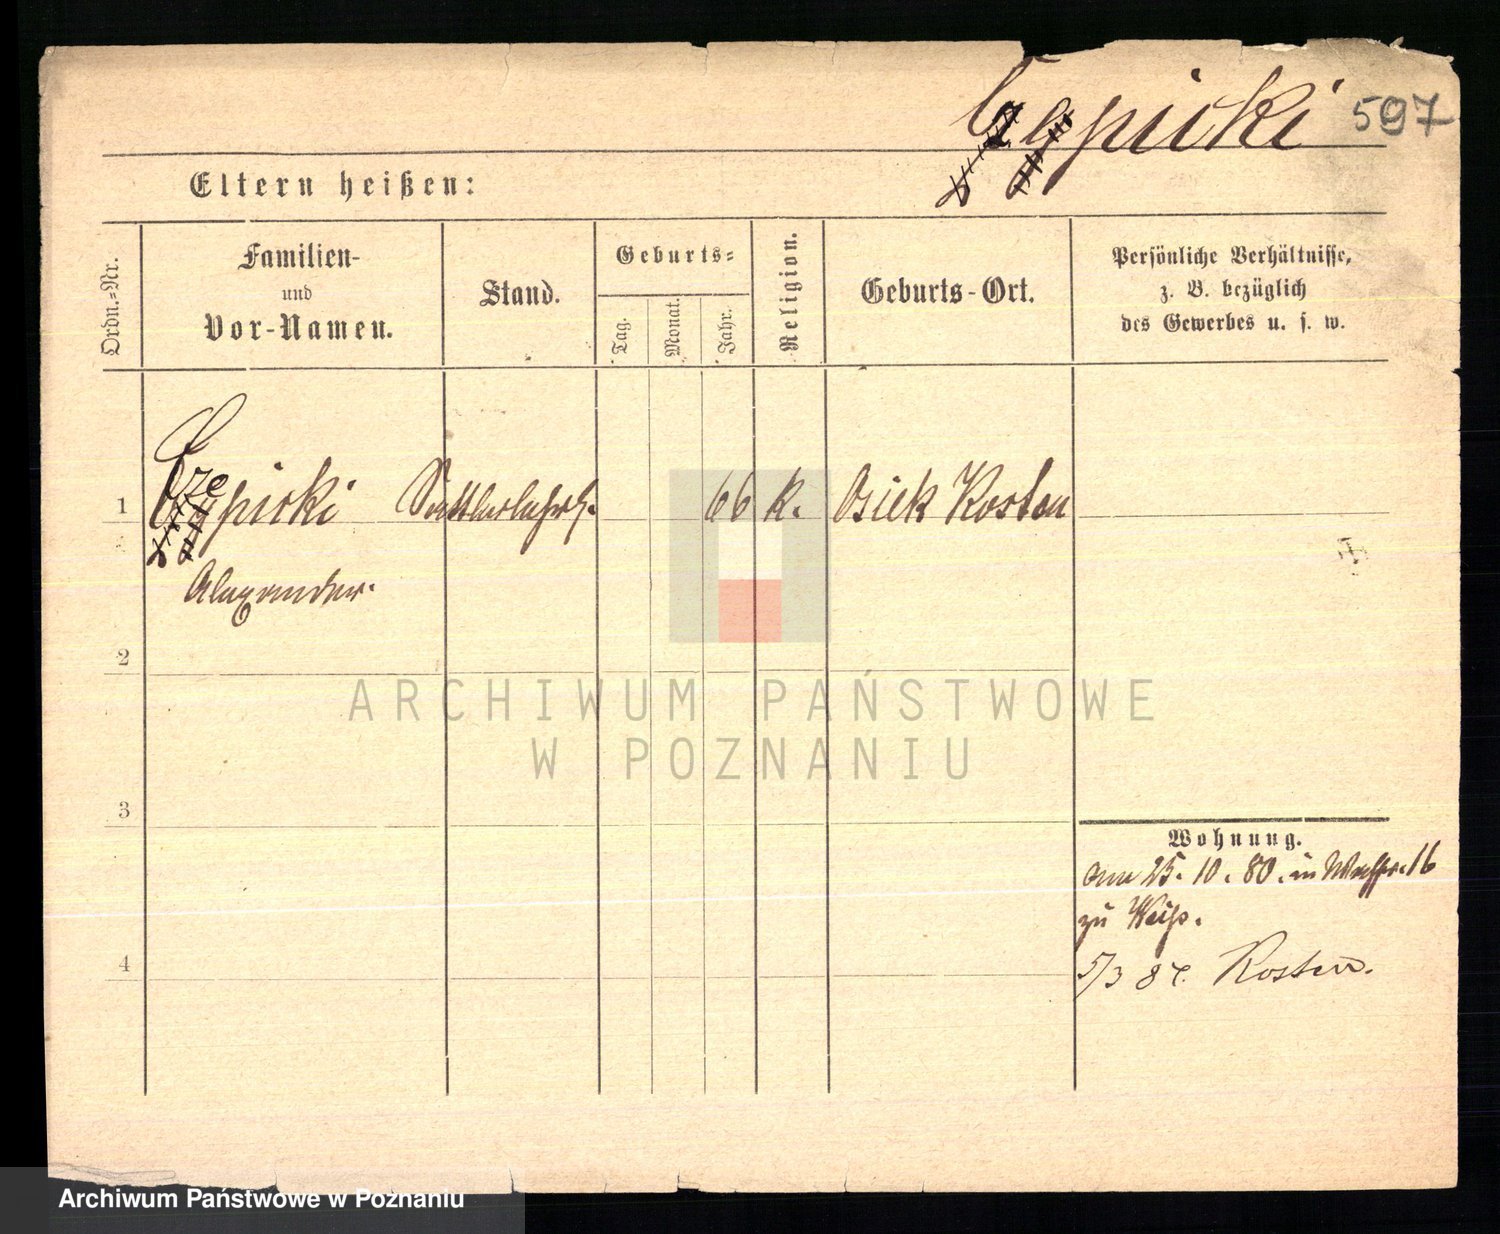 Czepicki 597
Eltern heißen:
Ordn.=Nr.
Familien-
und
Vor-Namen.
Stand.
Geburts=
Tag.
Monat.
Jahr.
Religion.
Geburts-Ort.
Persönliche Verhältnisse,
z. B. bezüglich
des Gewerbes u. s. w.
1 Czepicki Sattlerlehrl. 66 k. Osiek Kosten
Alexander.
2
ARCHIWUM PAŃSTWOWE
W POZNANIU
3
Wohnung.
am 25. 10. 80. in 16
zu Weiß.
4
5/3 87. Kosten.
Archiwum Państwowe w Poznaniu